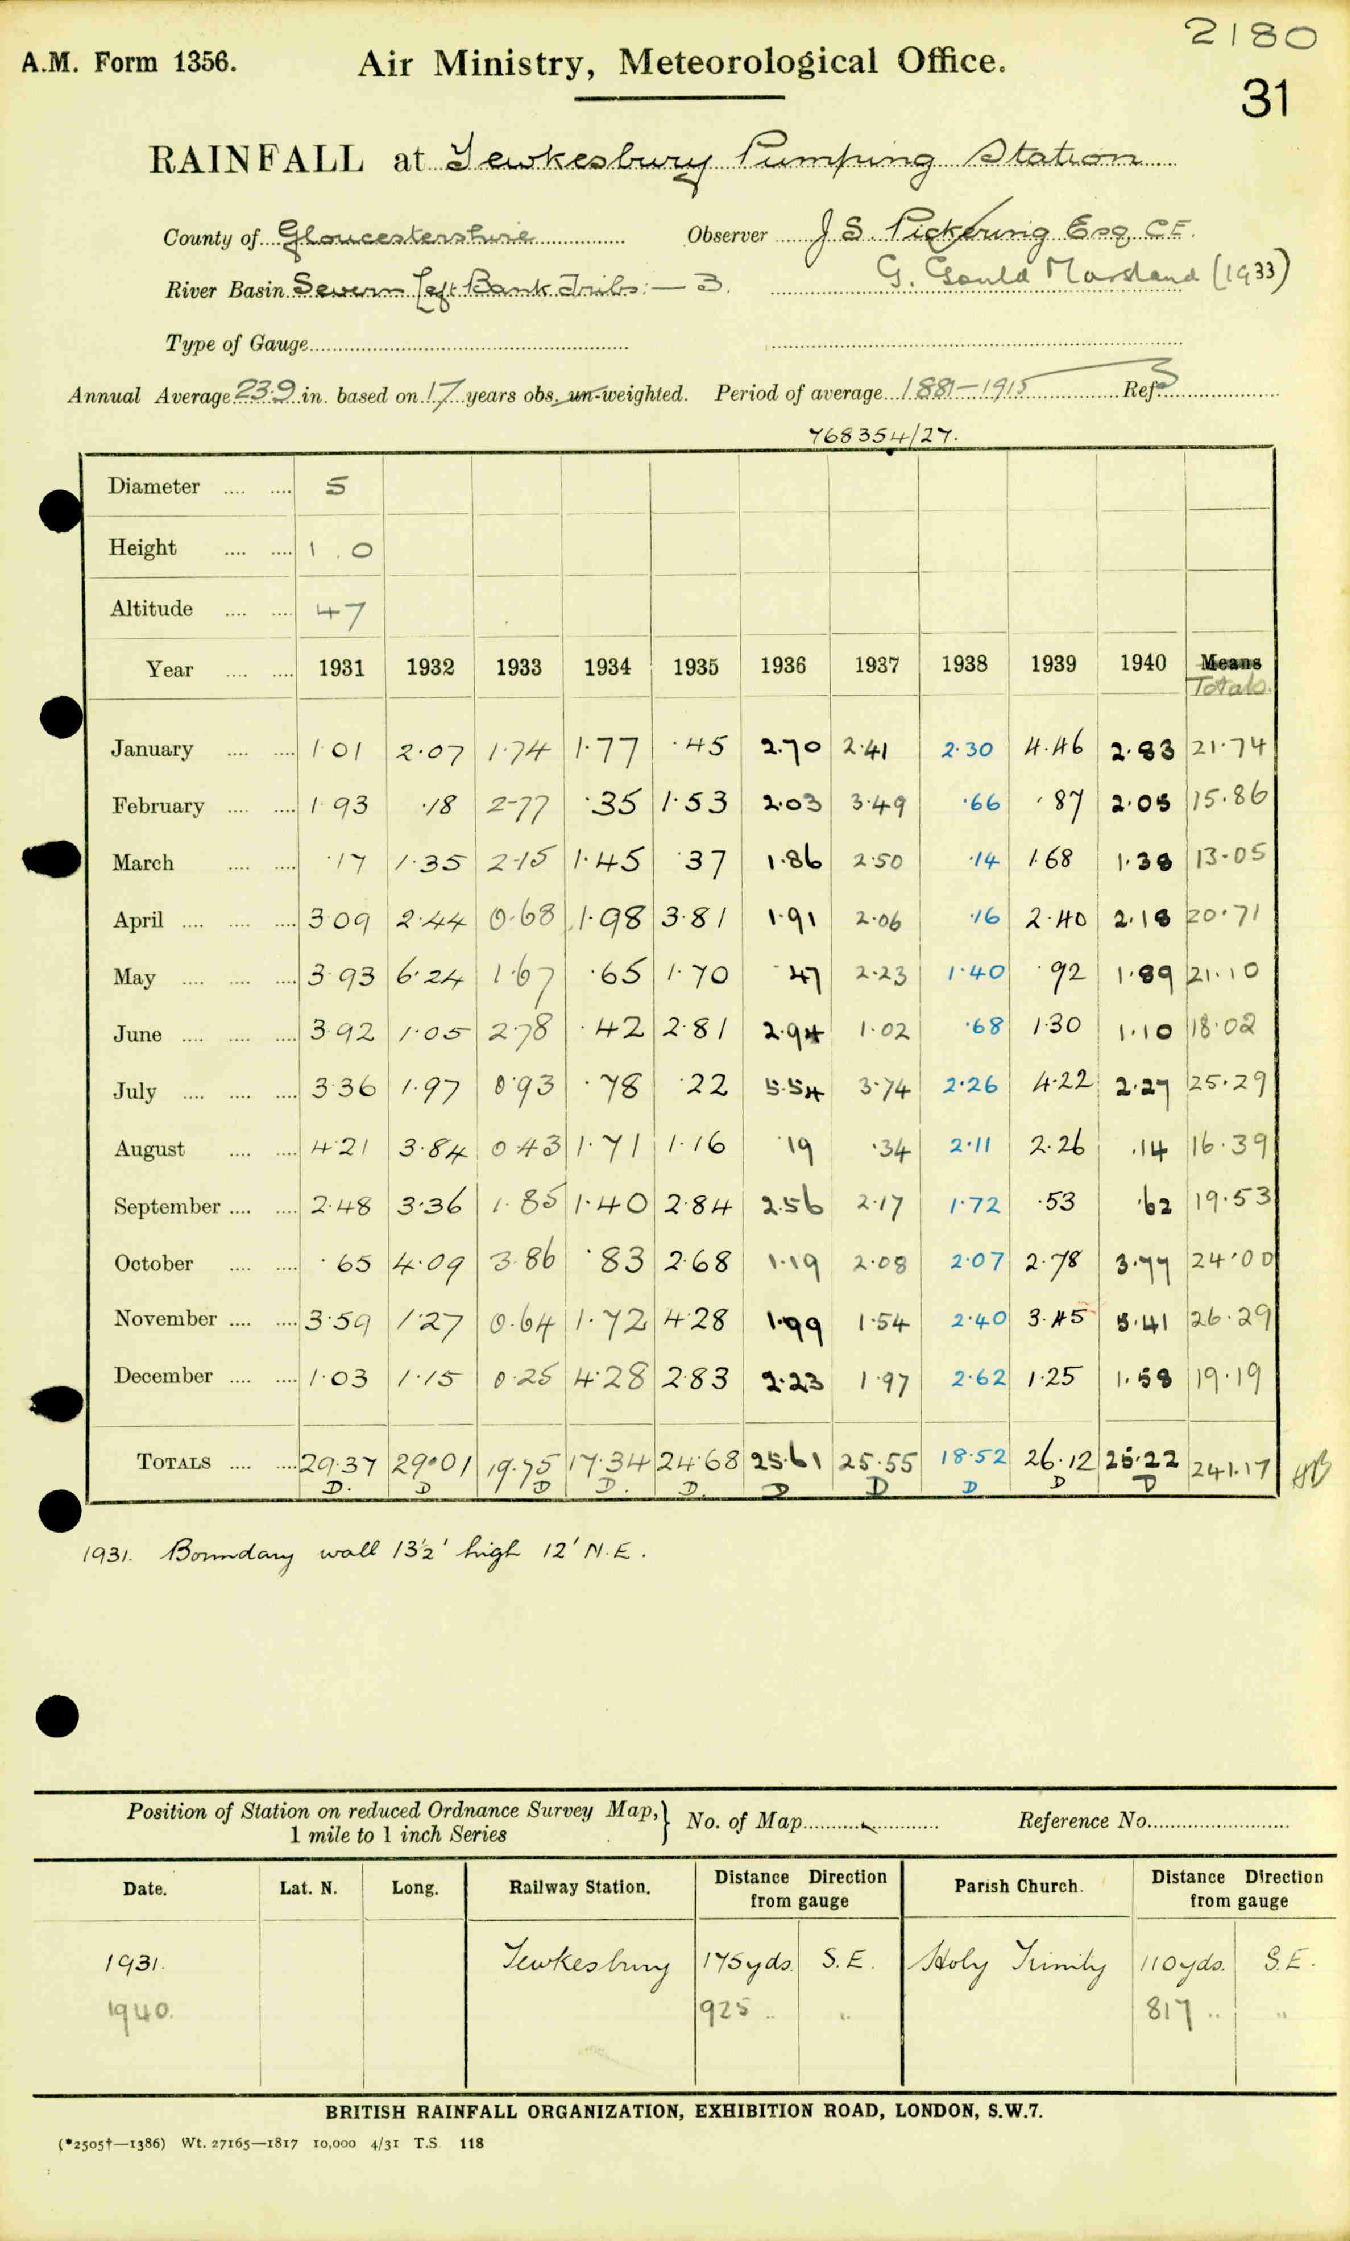 2180
A.M. Form 1356. Air Ministry, Meteorological Office.
31
RAINFALL at Tewkesbury Pumping Station
County of Gloucestershire Observer J S. Pickering Esq. C.E.
River Basin Severn Left Bank Tribs:— 3. G. Gould Marsland (1933)
Type of Gauge
Annual Average 23.9 in. based on 17 years obs. un-weighted. Period of average 1881–1915 Ref. 3
768354/27.
Diameter 5
Height 1.0
Altitude 47
Year 1931 1932 1933 1934 1935 1936 1937 1938 1939 1940 Means
Totals.
January 1.01 2.07 1.74 1.77 .45 2.70 2.41 2.30 4.46 2.83 21.74
February 1.93 .18 2.77 .35 1.53 2.03 3.49 .66 .87 2.05 15.86
March .17 1.35 2.15 1.45 .37 1.86 2.50 .14 1.68 1.38 13.05
April 3.09 2.44 0.68 1.98 3.81 1.91 2.06 .16 2.40 2.18 20.71
May 3.93 6.24 1.67 .65 1.70 .47 2.23 1.40 .92 1.89 21.10
June 3.92 1.05 2.78 .42 2.81 2.94 1.02 .68 1.30 1.10 18.02
July 3.36 1.97 0.93 .78 .22 5.54 3.74 2.26 4.22 2.27 25.29
August 4.21 3.84 0.43 1.71 1.16 .19 .34 2.11 2.26 .14 16.39
September 2.48 3.36 1.85 1.40 2.84 2.56 2.17 1.72 .53 .62 19.53
October .65 4.09 3.86 .83 2.68 1.19 2.08 2.07 2.78 3.77 24.00
November 3.59 1.27 0.64 1.72 4.28 1.99 1.54 2.40 3.45 5.41 26.29
December 1.03 1.15 0.25 4.28 2.83 2.23 1.97 2.62 1.25 1.58 19.19
TOTALS 29.37 29.01 19.75 17.34 24.68 25.61 25.55 18.52 26.12 25.22 241.17
D. D D D. D. D D D D D
1931. Boundary wall 13½' high 12' N.E.
Position of Station on reduced Ordnance Survey Map, No. of Map Reference No.
1 mile to 1 inch Series
Date. Lat. N. Long. Railway Station. Distance Direction from gauge Parish Church. Distance Direction from gauge
1931. Tewkesbury 175 yds. S.E. Holy Trinity 110 yds. S.E.
1940. 925 " " 817 " "
BRITISH RAINFALL ORGANIZATION, EXHIBITION ROAD, LONDON, S.W.7.
(*2505†—1386) Wt. 27165—1817 10,000 4/31 T.S. 118